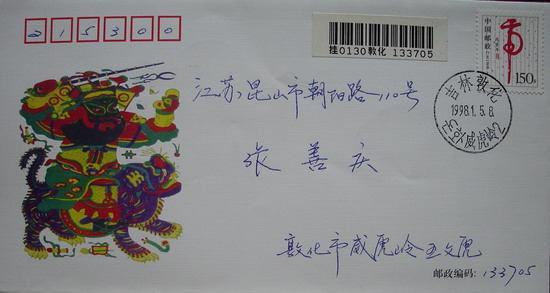 215300
挂0130敦化 133705
中国邮政
150分
吉林敦化
1998.1.5.8
威虎岭2
江苏昆山市朝阳路110号
张善庆
敦化市威虎岭王文虎
邮政编码:133705